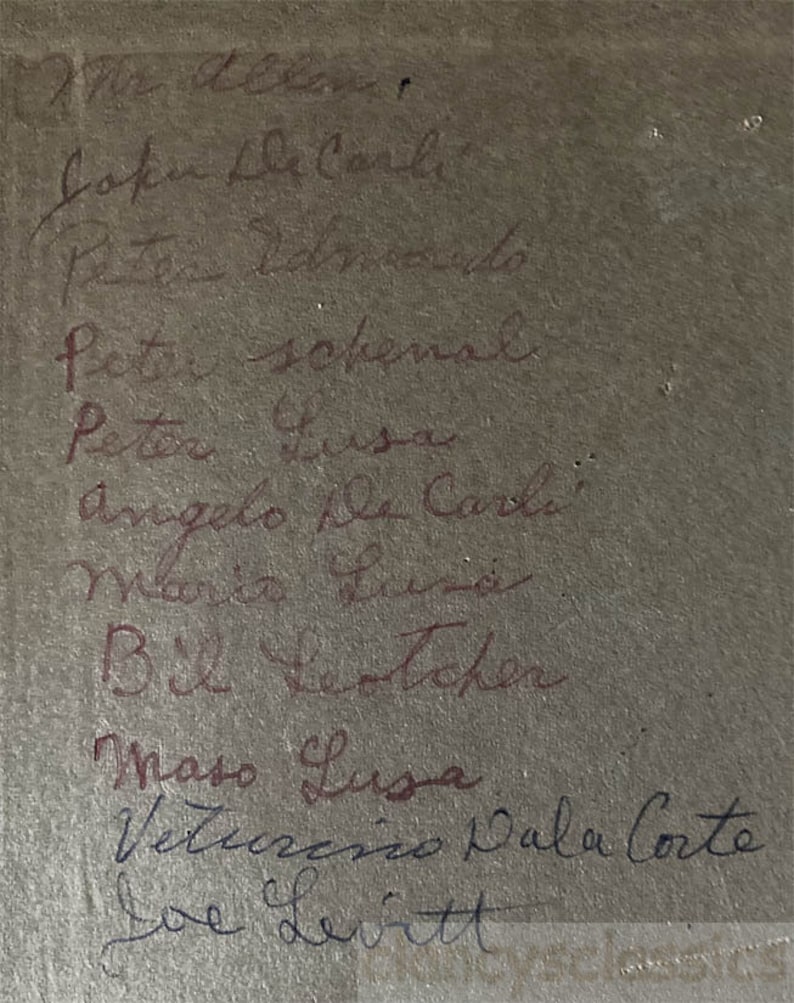 Mr Allen.
John De Carli
Peter Edmondo
Peter schenal
Peter Lusa
Angelo De Carli
Mario Lusa
Bil Leotcher
Maso Lusa
Veturino Dala Corte
Joe Levitt
clancysclassics